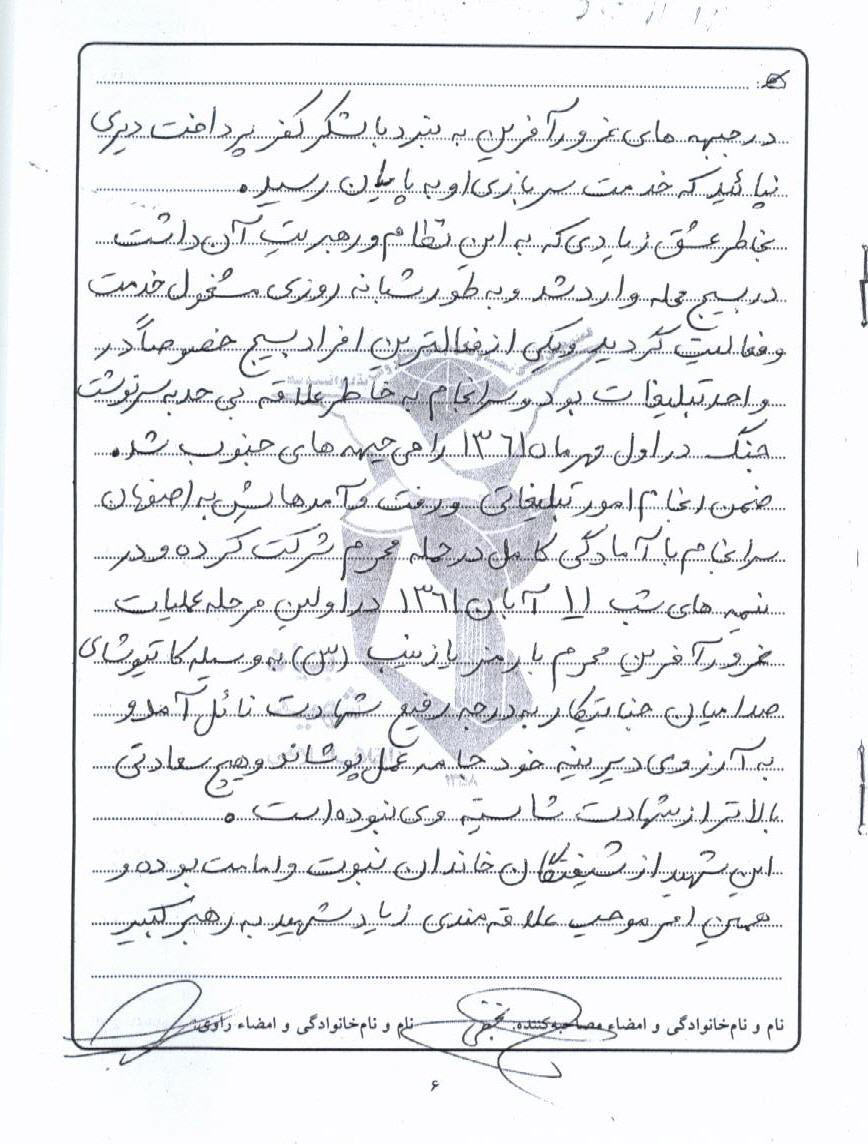 در جبهه های غرورآفرین به نبرد با لشکر کفر پرداخت دیری
نپائید که خدمت سربازی او به پایان رسید.
بخاطر عشق زیادی که به این نظام و رهبریت آن داشت
در بسیج محله وارد شد و به طور شبانه روزی مشغول خدمت
و فعالیت گردید و یکی از فعالترین افراد بسیج خصوصاً در
واحد تبلیغات بود و سرانجام به خاطر علاقه بی حد به سرنوشت
جنگ در اول مهرماه ۱۳۶۱ راهی جبهه های جنوب شد.
ضمن انجام امور تبلیغاتی و رفت و آمدهایش به اصفهان
سرانجام با آمادگی کامل در حمله محرم شرکت کرده و در
نیمه های شب ۱۱ آبان ۱۳۶۱ در اولین مرحله عملیات
غرورآفرین محرم با رمز یا زینب (س) به وسیله کاتیوشای
صدامیان جنایتکار به درجه رفیع شهادت نائل آمد و
به آرزوی دیرینه خود جامه عمل پوشاند و هیچ سعادتی
بالاتر از شهادت شایسته وی نبوده است.
این شهید از شیفتگان خاندان نبوت و امامت بوده و
همین امر موجب علاقه مندی زیاد شهید به رهبر کبیر
نام و نام خانوادگی و امضاء مصاحبه کننده: نام و نام خانوادگی و امضاء راوی:
۶